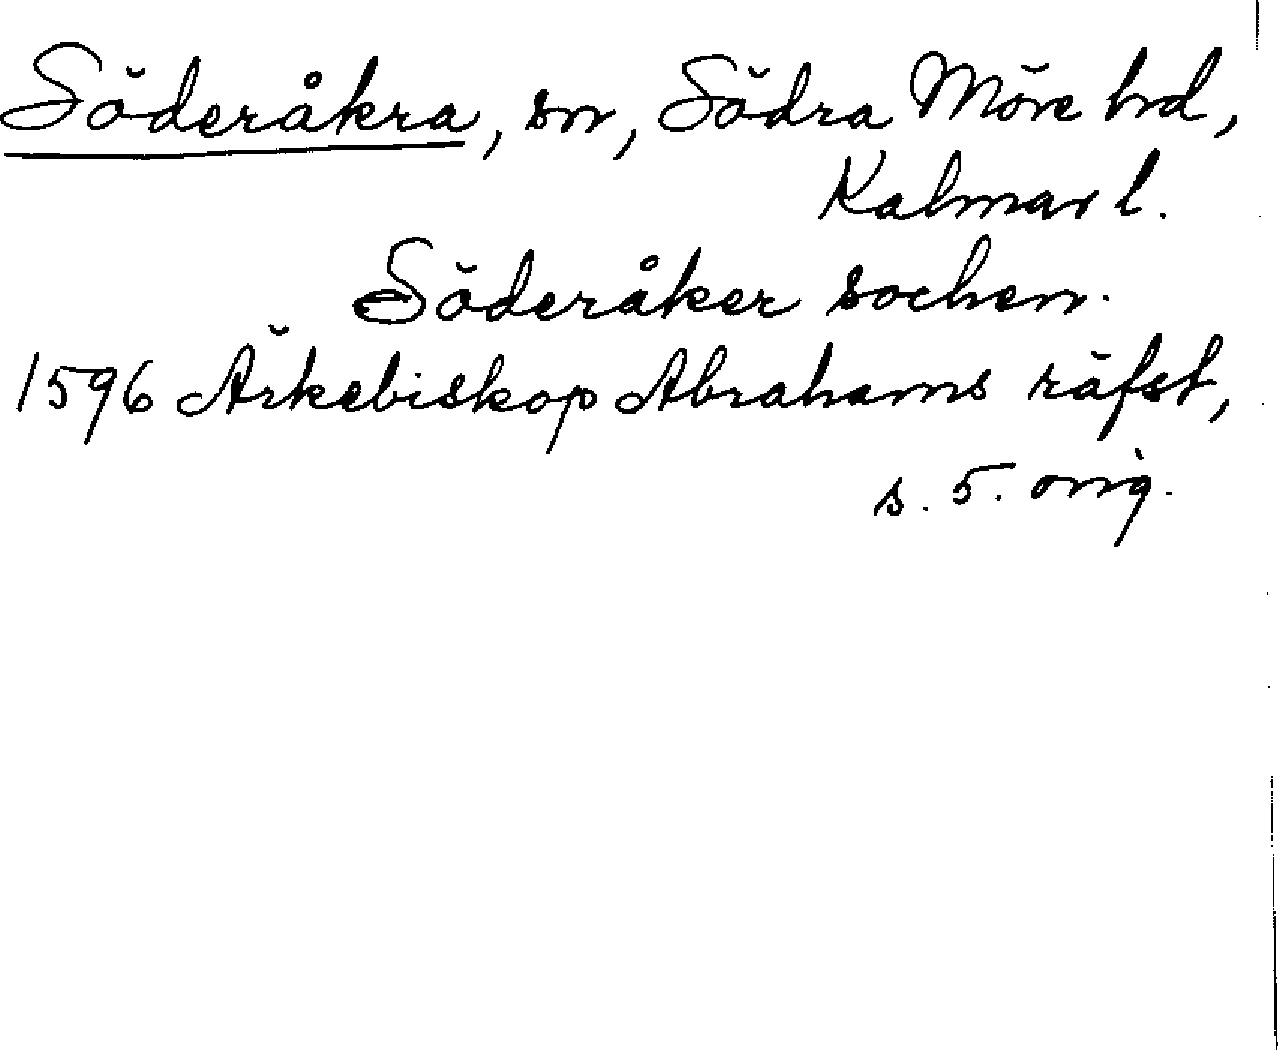 Söderåkra, sn, Södra Möre hd,
Kalmar l.
Söderåker sochen.
1596 Ärkebiskop Abrahams räfst,
s. 5. orig.